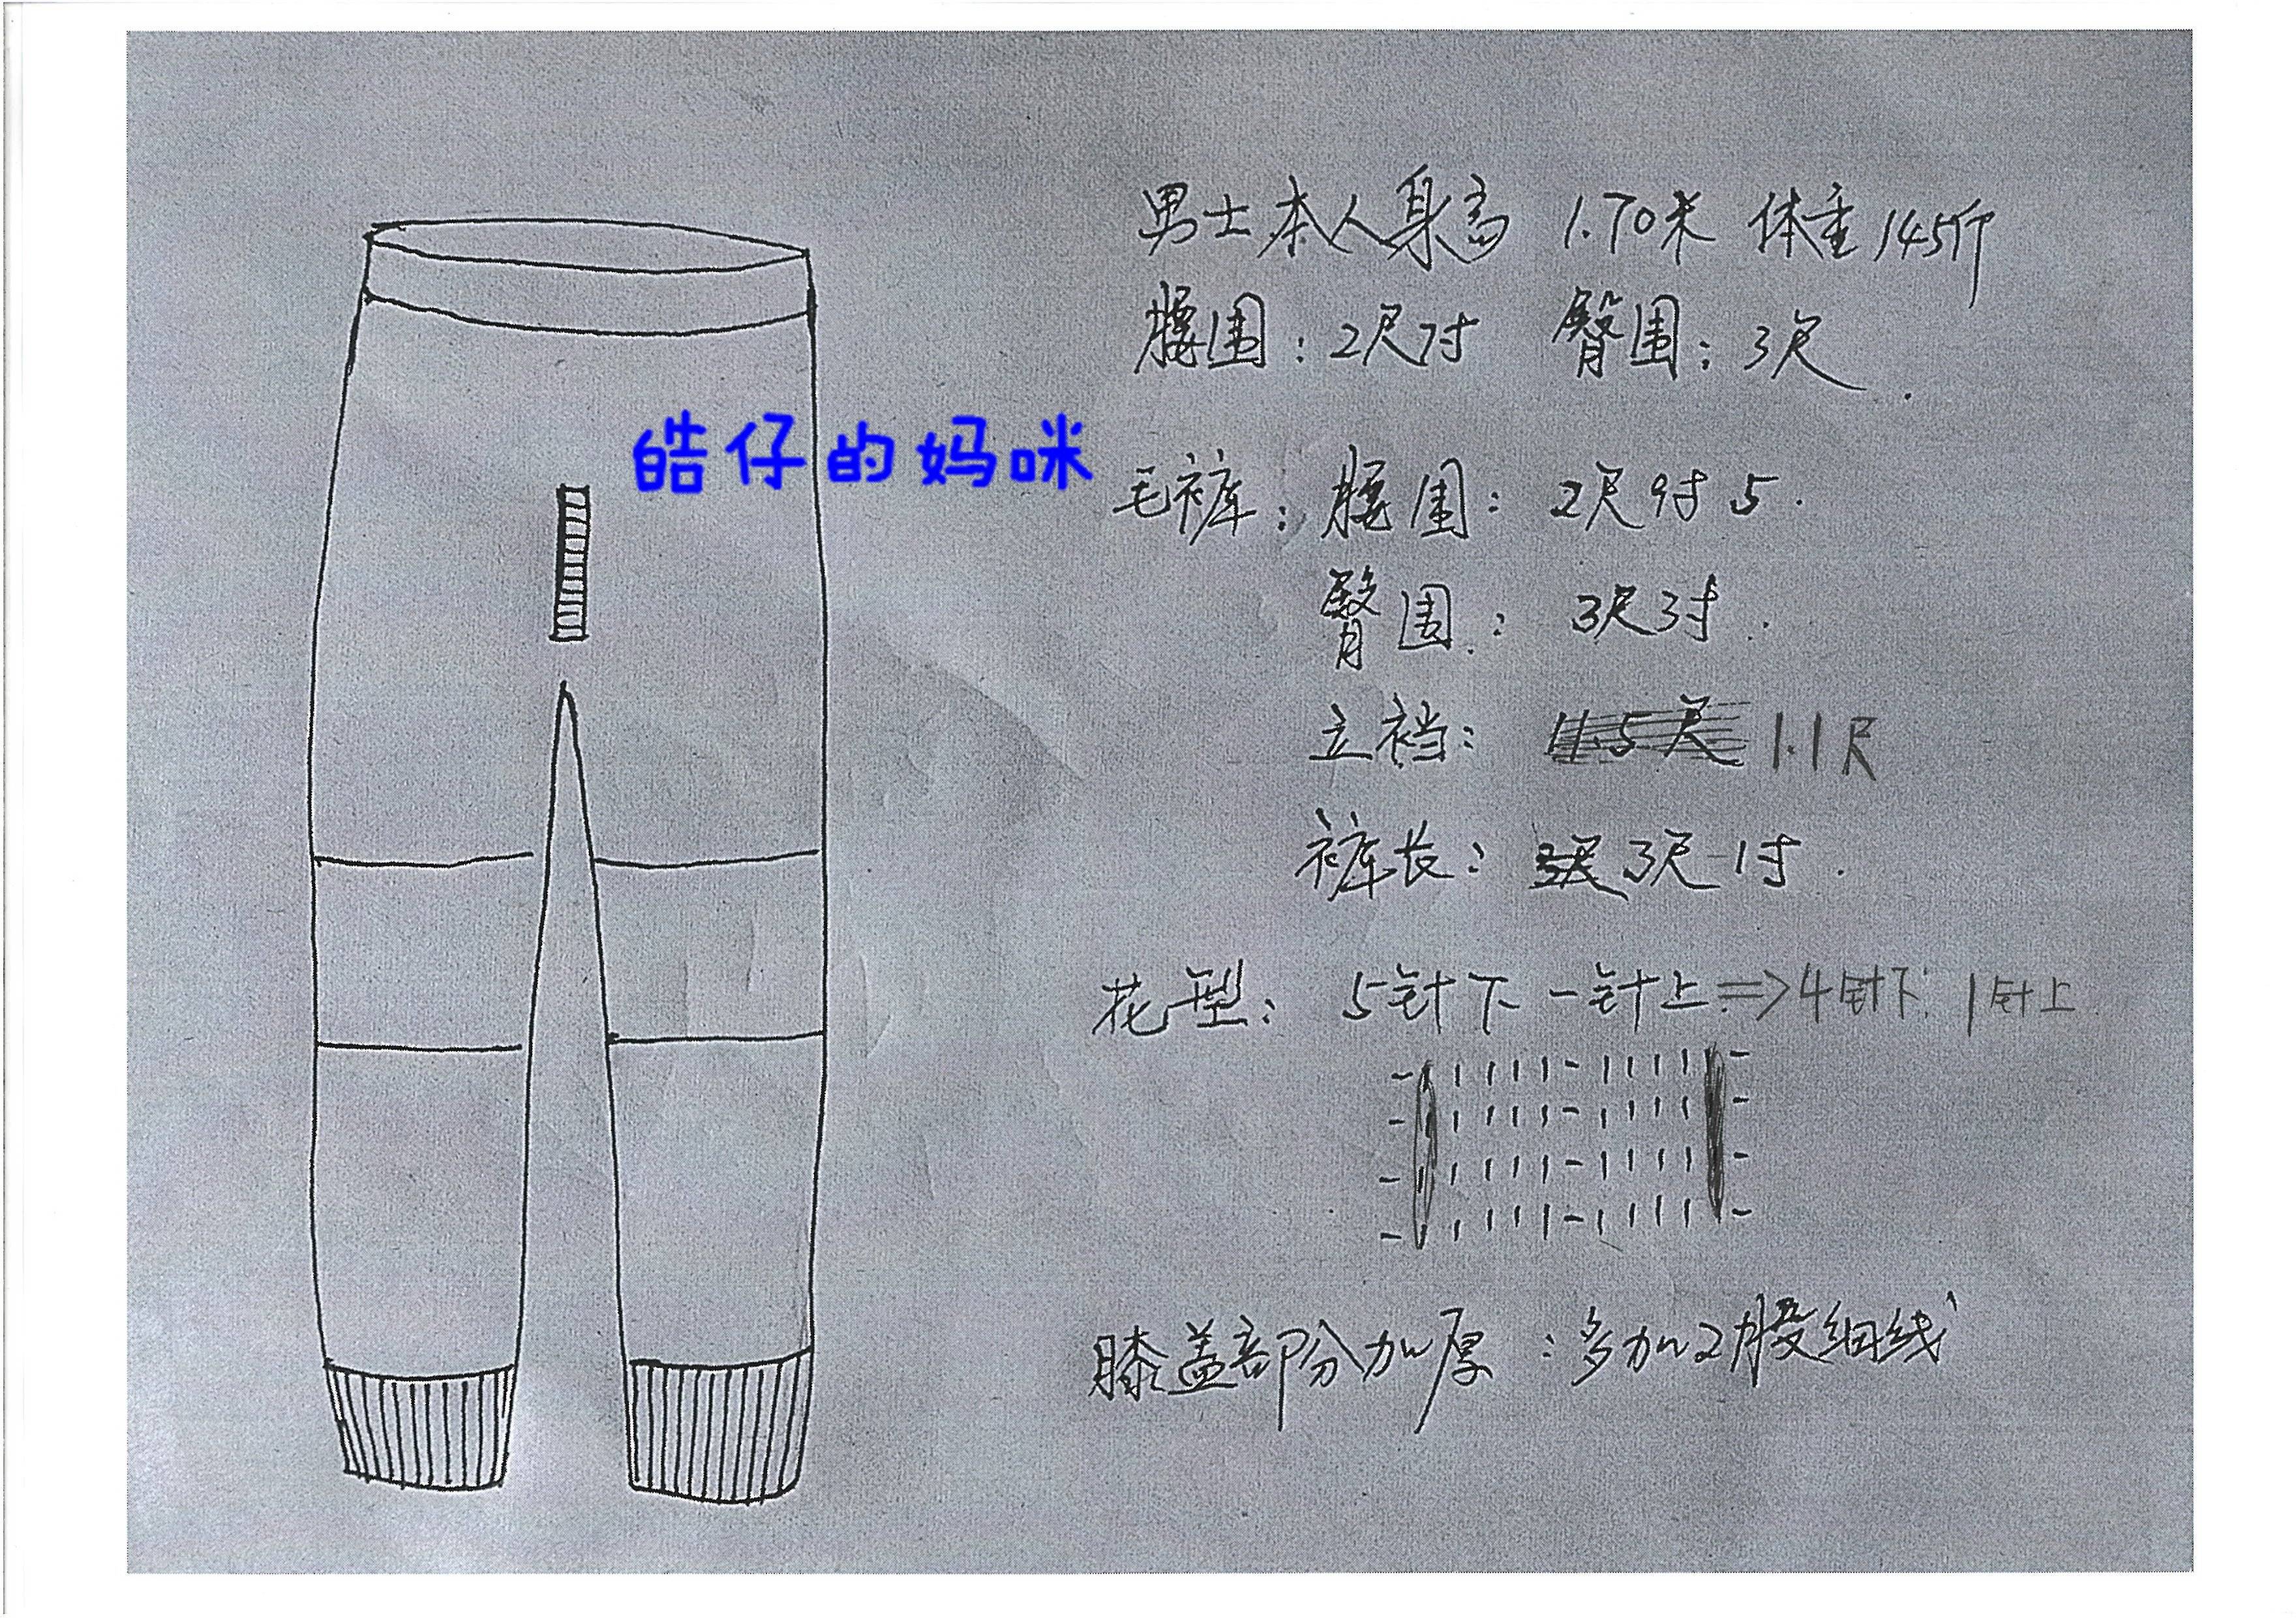 男士本人身高 1.70米 体重145斤
腰围：2尺7寸 臀围：3尺.
皓仔的妈咪
毛裤：腰围：2尺9寸5.
臀围：3尺3寸.
立裆：1.1尺
裤长：3尺1寸.
花型：5针下一针上=>4针下1针上
膝盖部分加厚：多加2股细线